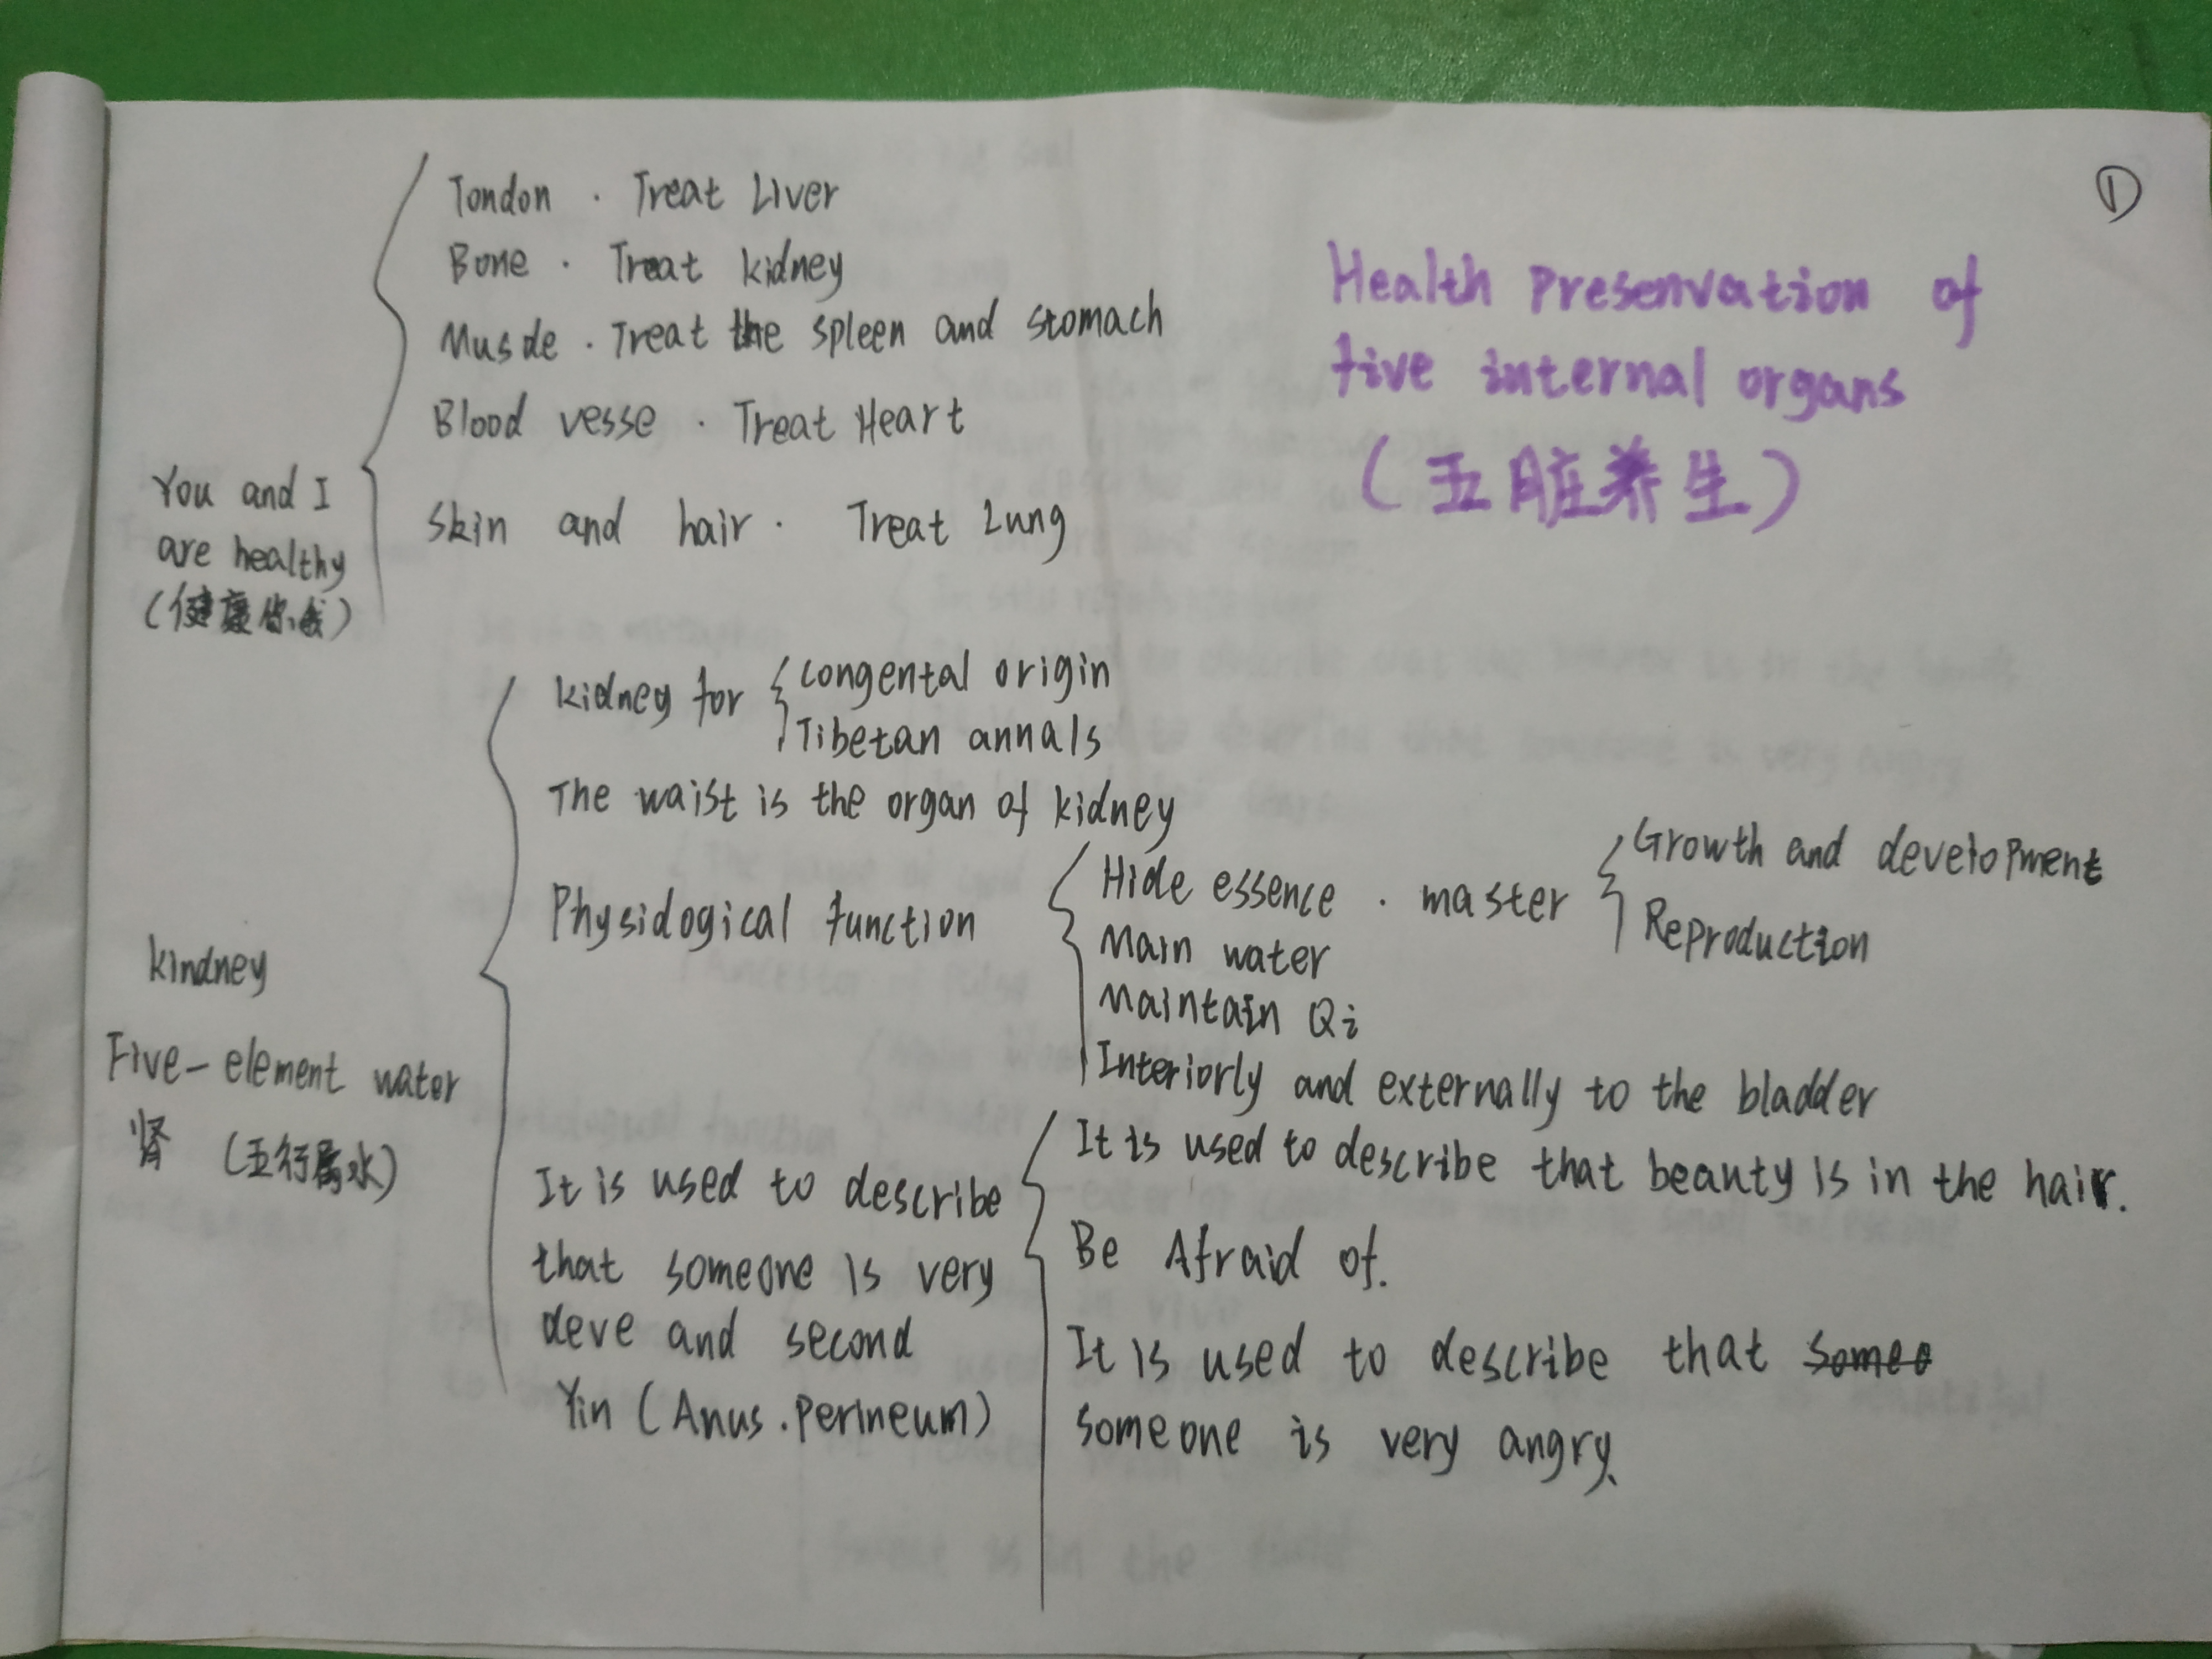 ①
Health Presenvation of
five internal organs
(五脏养生)
Tondon · Treat Liver
Bone · Treat kidney
Musde · Treat the spleen and stomach
Blood vesse · Treat Heart
Skin and hair · Treat Lung
You and I
are healthy
(健康你我)
kidney for
congental origin
Tibetan annals
The waist is the organ of kidney
Physidogical function
Hide essence · master
Growth and development
Reproduction
Main water
Maintain Qi
Interiorly and externally to the bladder
kindney
Five-element water
肾 (五行属水)
It is used to describe
that someone is very
deve and second
Yin (Anus.perineum)
It is used to describe that beauty is in the hair.
Be Afraid of.
It is used to describe that someo
someone is very angry.